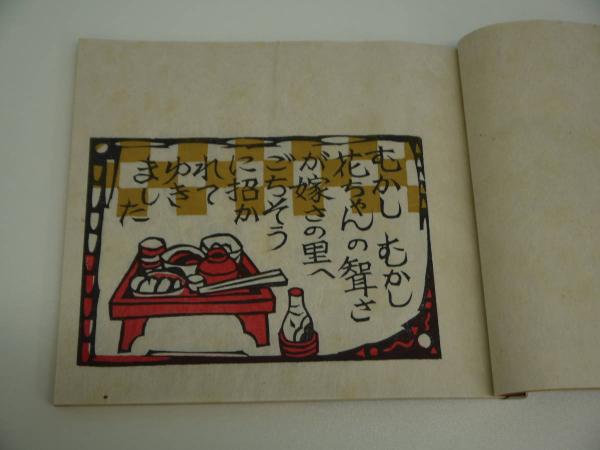 むかし むかし
花ちゃんの聟さ
が嫁さの里へ
ごちそう
に招か
れて
ゆき
ました